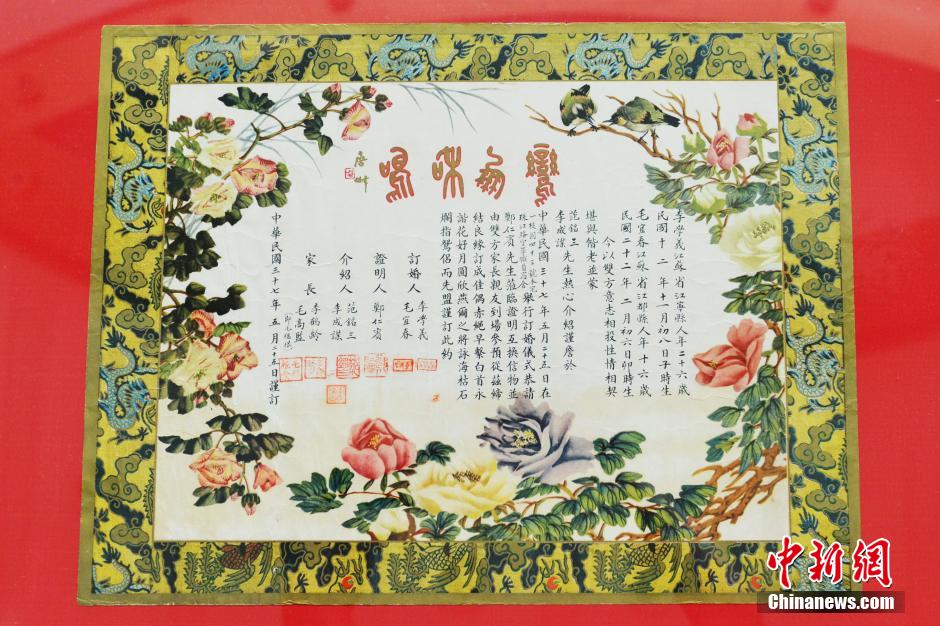 鸞鳳和鳴
李學義江蘇省江寧縣人年二十六歲
民國十二年十一月初八日子時生
毛宜春江蘇省江都縣人年十六歲
民國二十二年二月初六日卯時生
今以雙方意志相投性情相契
堪與偕老並蒙
范銘三
李成謀先生熱心介紹謹詹於
中華民國三十七年五月二十五日在
舉行訂婚儀式恭請
鄭仁賓先生蒞臨證明互換信物並
由雙方家長親友到場參預從茲締
結良緣訂成佳偶赤繩早繫白首永
諧花好月圓欣燕爾之將詠海枯石
爛指鴛侶而先盟謹訂此約
訂婚人 李學義
毛宜春
證明人 鄭仁賓
介紹人 范銘三
李成謀
家長 李鶴齡
毛高監
中華民國三十七年五月二十五日謹訂
中新網
Chinanews.com